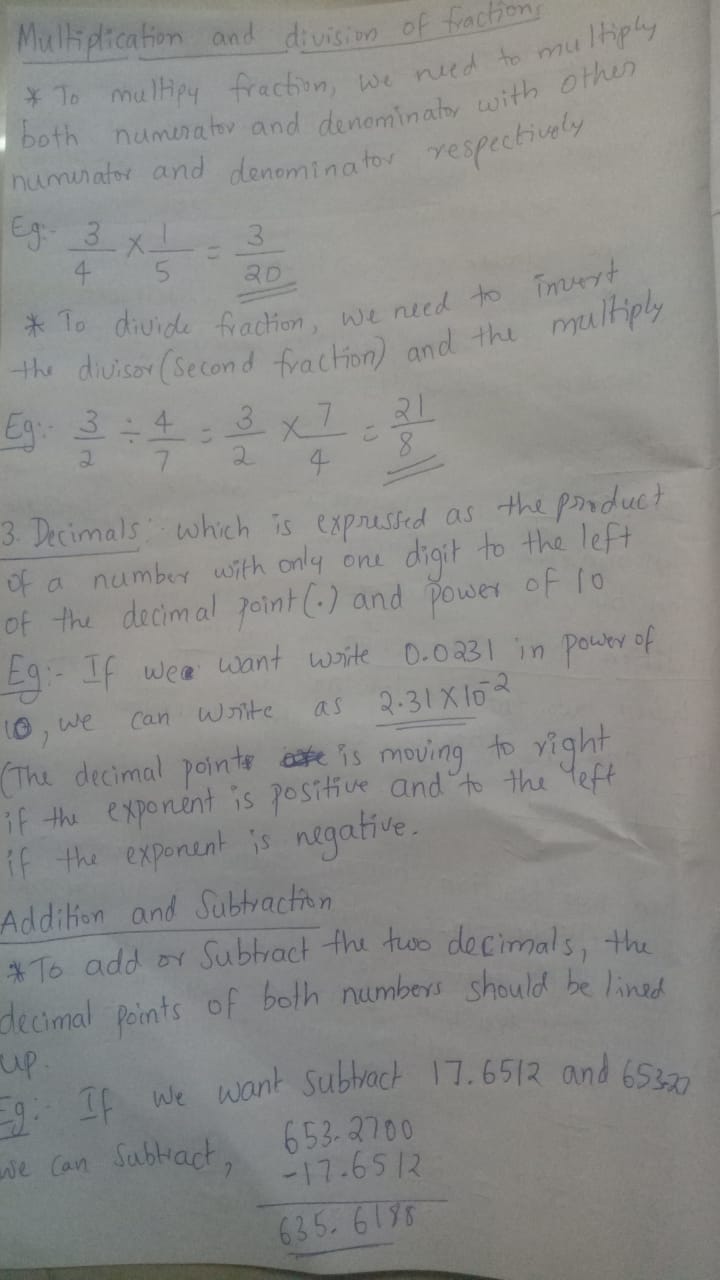 Multiplication and division of fractions
* To multipy fraction, we need to multiply
both numerator and denominator with other
numerator and denominator respectively
Eg:- 3/4 × 1/5 = 3/20
* To divide fraction, we need to invert
the divisor (Second fraction) and the multiply
Eg:- 3/2 ÷ 4/7 = 3/2 × 7/4 = 21/8
3. Decimals: which is expressed as the product
of a number with only one digit to the left
of the decimal point (.) and power of 10
Eg:- If we want write 0.0231 in power of
10, we can write as 2.31×10⁻²
(The decimal point is moving to right
if the exponent is positive and to the left
if the exponent is negative.
Addition and Subtraction
* To add or Subtract the two decimals, the
decimal points of both numbers should be lined
up.
Eg:- If we want Subtract 17.6512 and 653.27
we can Subtract, 653.2700
-17.6512
635.6188